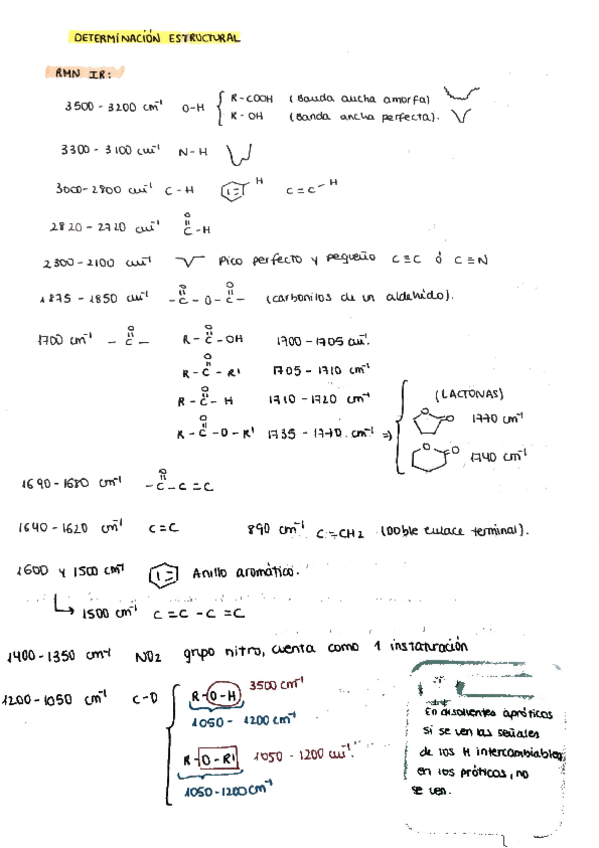 DETERMINACIÓN ESTRUCTURAL
RMN IR:
3500 - 3200 cm⁻¹ O-H R-COOH (Banda ancha amorfa)
R-OH (Banda ancha perfecta).
3300 - 3100 cm⁻¹ N-H
3000-2800 cm⁻¹ C-H H C=C-H
2820 - 2720 cm⁻¹ O=C-H
2300-2100 cm⁻¹ Pico perfecto y pequeño C≡C ó C≡N
1875 - 1850 cm⁻¹ -C(=O)-O-C(=O)- (carbonilos de un aldehido).
1700 cm⁻¹ -C(=O)- R-C(=O)-OH 1700-1705 cm⁻¹.
R-C(=O)-R' 1705-1710 cm⁻¹
R-C(=O)-H 1710-1720 cm⁻¹
R-C(=O)-O-R' 1735-1770 cm⁻¹ =>
(LACTONAS)
O O 1770 cm⁻¹
O O 1740 cm⁻¹
1690-1680 cm⁻¹ -C(=O)-C=C
1640-1620 cm⁻¹ C=C 890 cm⁻¹ C=CH2 (Doble enlace terminal).
1600 y 1500 cm⁻¹ Anillo aromático.
1500 cm⁻¹ C=C-C=C
1400-1350 cm⁻¹ NO2 grupo nitro, cuenta como 1 instaturación
1200-1050 cm⁻¹ C-O R-O-H 3500 cm⁻¹
1050 - 1200 cm⁻¹
R-O-R' 1050 - 1200 cm⁻¹.
1050-1200 cm⁻¹
En disolventes apróticos
si se ven las señales
de los H intercambiables,
en los próticos, no
se ven.